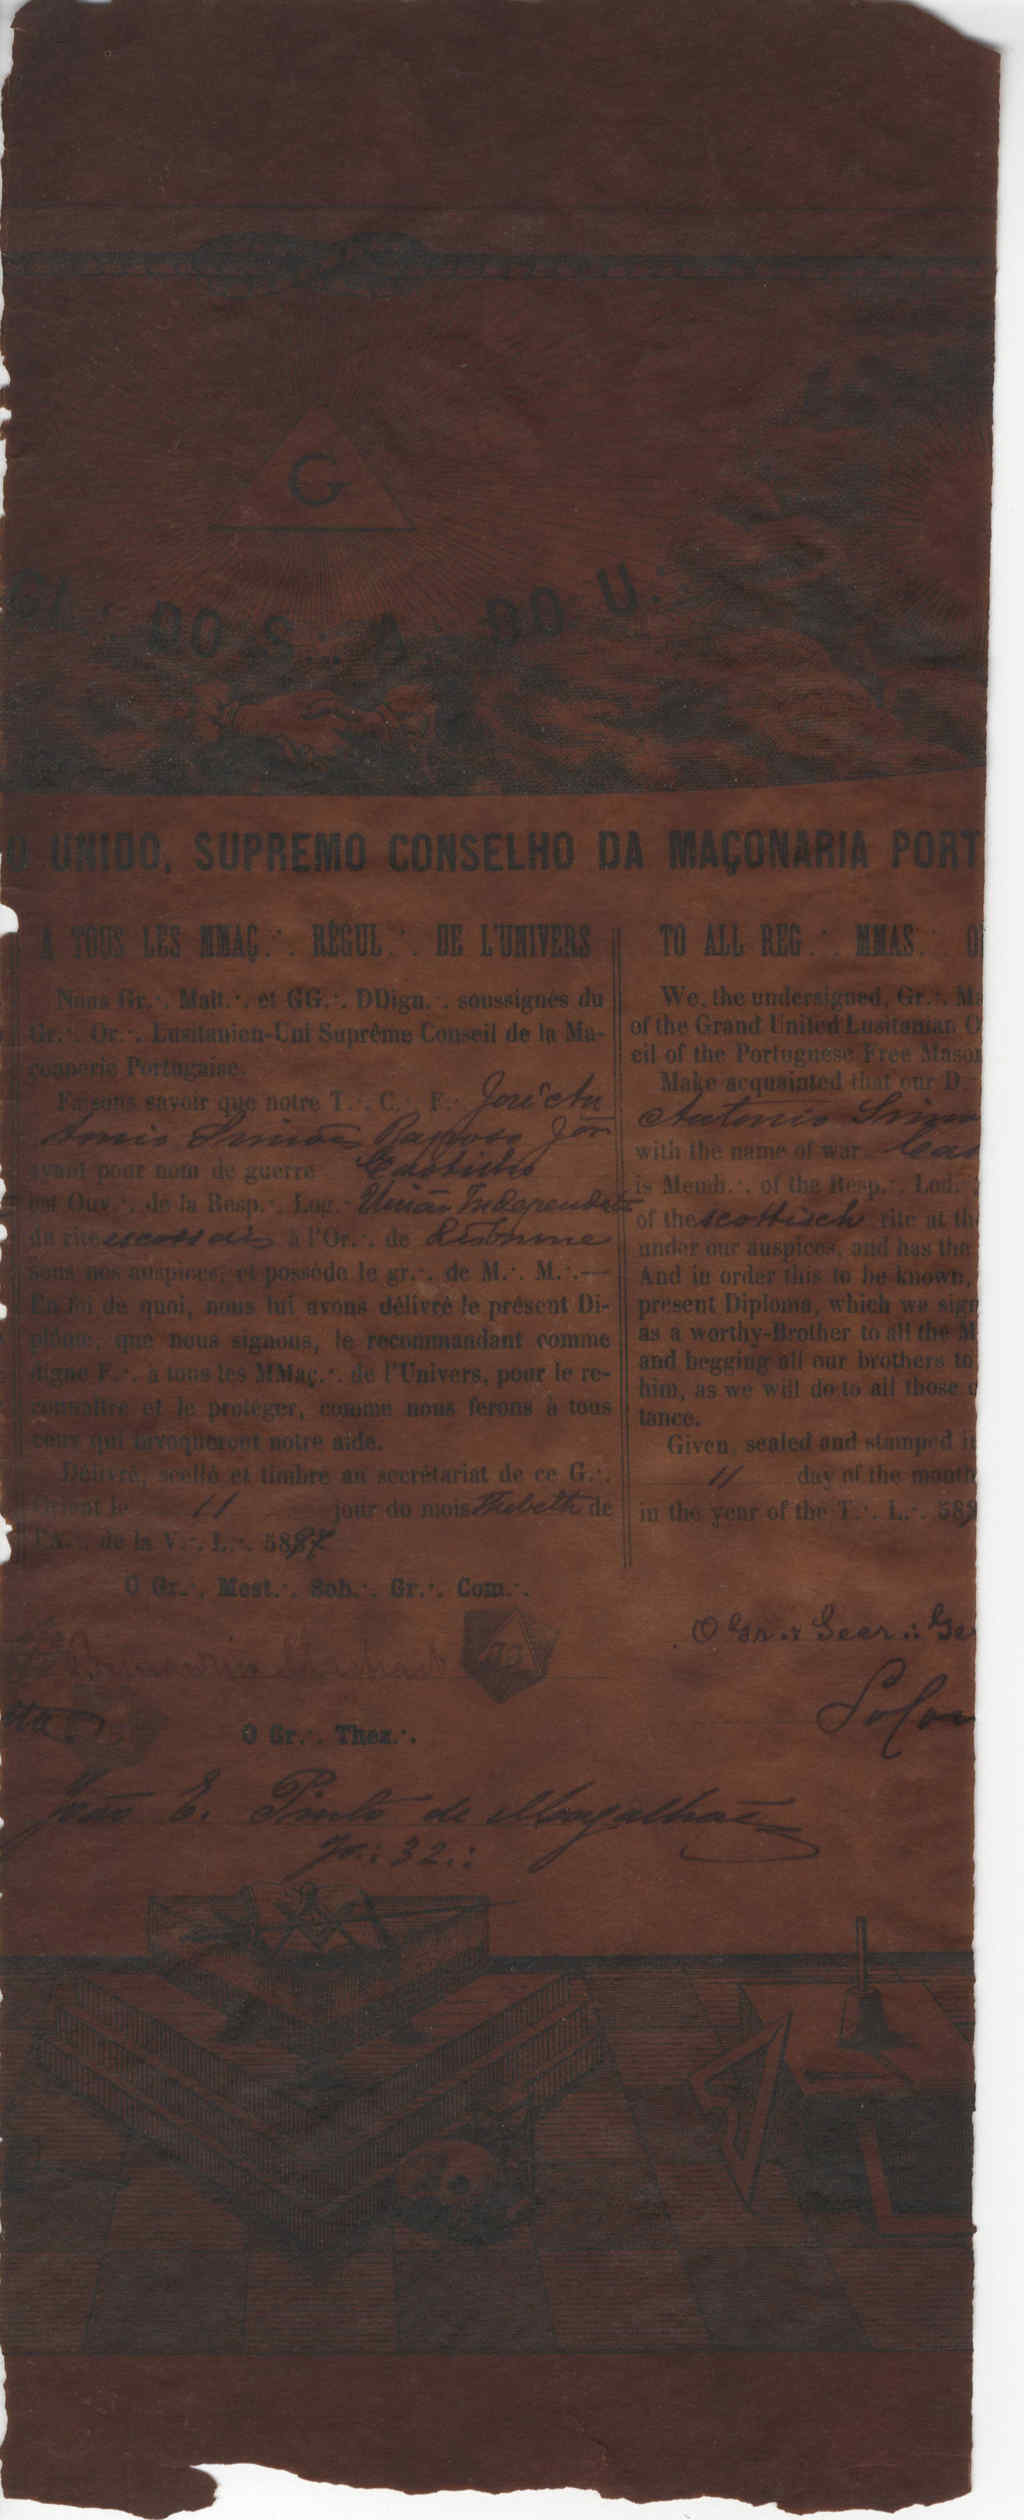 G
Gl∴ DO S∴ A∴ DO U∴
O UNIDO, SUPREMO CONSELHO DA MAÇONARIA PORT
A TOUS LES MMAÇ∴ RÉGUL∴ DE L'UNIVERS
Nous Gr∴ Mait∴ et GG∴ DDign∴ soussignés du
Gr∴ Or∴ Lusitanien-Uni Suprême Conseil de la Ma-
çonnerie Portugaise.
Faisons savoir que notre T∴ C∴ F∴ José An
tonio Simões Raposo Jor
ayant pour nom de guerre Castilho
est Ouv∴ de la Resp∴ Log∴ União Independente
du rite escossais à l'Or∴ de Lisbonne
sous nos auspices, et possède le gr∴ de M∴ M∴—
En foi de quoi, nous lui avons délivré le présent Di-
plôme, que nous signons, le recommandant comme
digne F∴ a tous les MMaç∴ de l'Univers, pour le re-
connaitre et le protéger, comme nous ferons à tous
ceux qui invoqueront notre aide.
Délivré, scellé et timbré au secrétariat de ce G∴
Orient le 11 jour do mois Thebeth de
l'A∴ de la V∴ L∴ 5897
TO ALL REG∴ MMAS∴ O
We, the undersigned, Gr∴ Ma
of the Grand United Lusitanian O
cil of the Portuguese Free Mason
Make acquainted that our D∴
Antonio Simo
with the name of war Cas
is Memb∴ of the Resp∴ Lod∴
of the scottisch rite at th
under our auspices, and has the
And in order this to be known,
present Diploma, which we sign
as a worthy-Brother to all the M
and begging all our brothers to
him, as we will do to all those o
tance.
Given, sealed and stamped i
11 day of the month
in the year of the T∴ L∴ 589
O Gr∴ Mest∴ Sob∴ Gr∴ Com∴
O Gr∴ Secr∴ Ge
Solon
O Gr∴ Thez∴
João E. Pinto de Magalhães
gr∴ 32∴